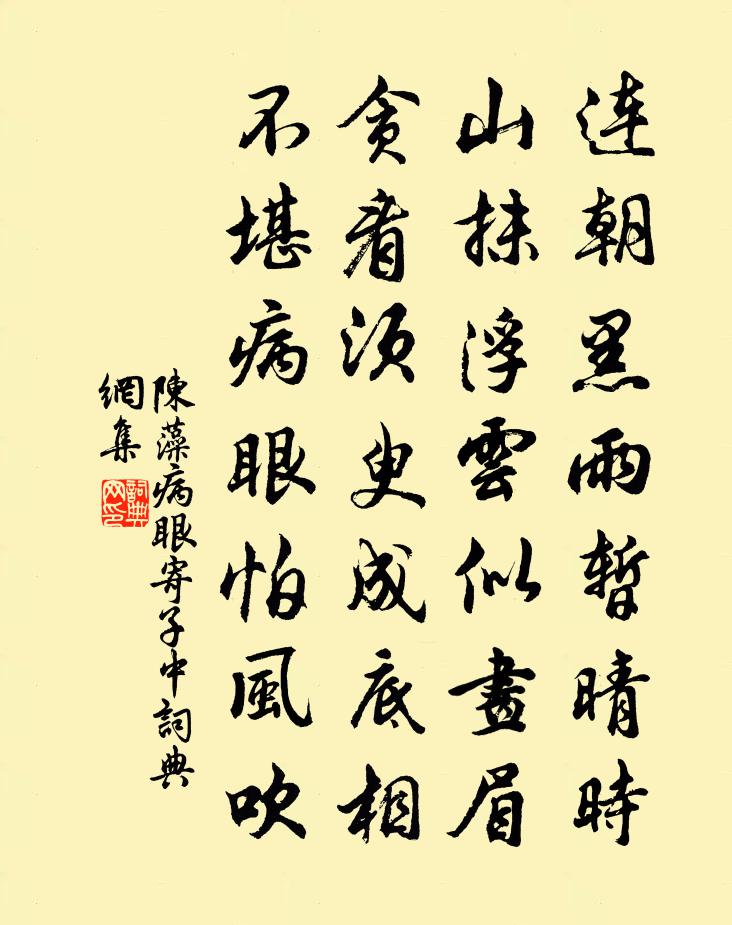 連朝黑雨暫晴時
山抹浮雲似畫眉
貪看須臾成底相
不堪病眼怕風吹
陳藻病眼寄子中詞典
網集
詞典
网印